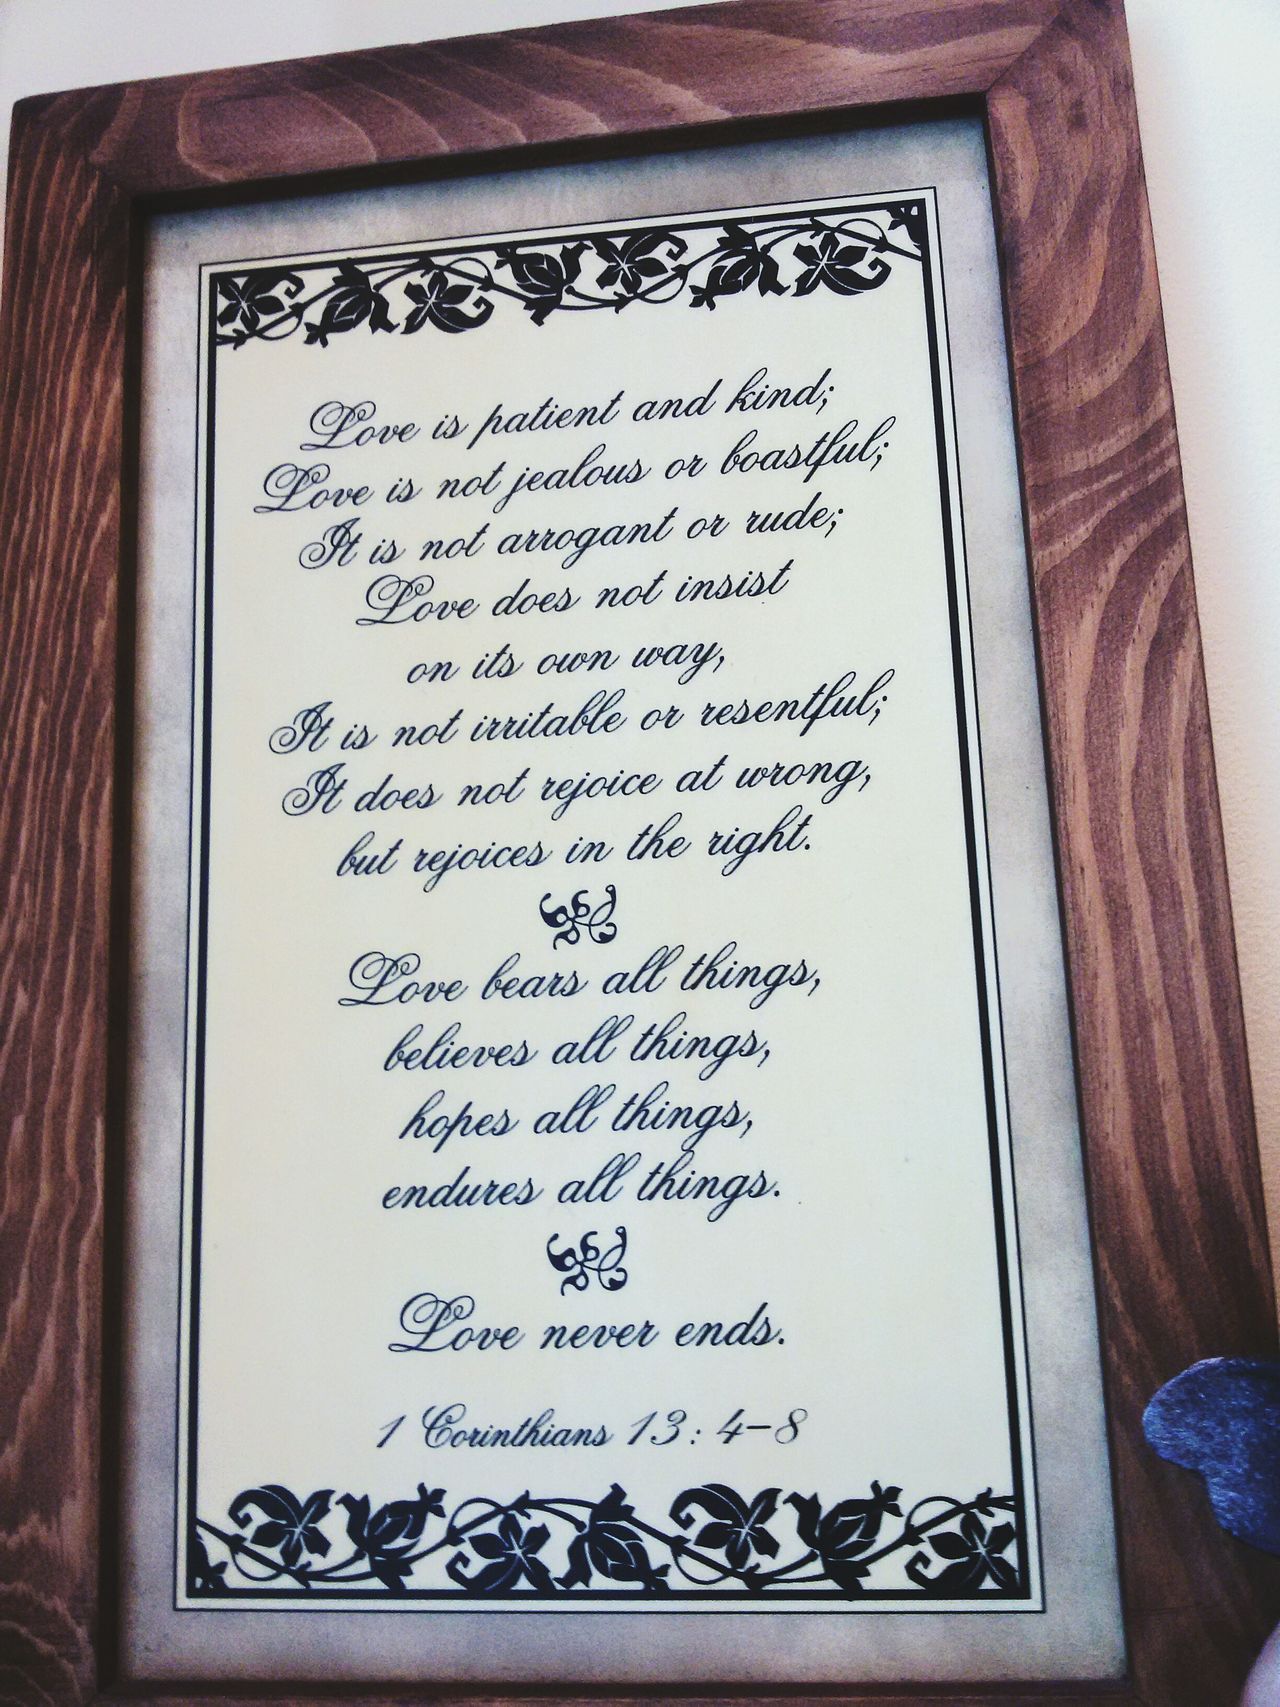 Love is patient and kind;
Love is not jealous or boastful;
It is not arrogant or rude;
Love does not insist
on its own way,
It is not irritable or resentful;
It does not rejoice at wrong,
but rejoices in the right.
Love bears all things,
believes all things,
hopes all things,
endures all things.
Love never ends.
1 Corinthians 13: 4-8